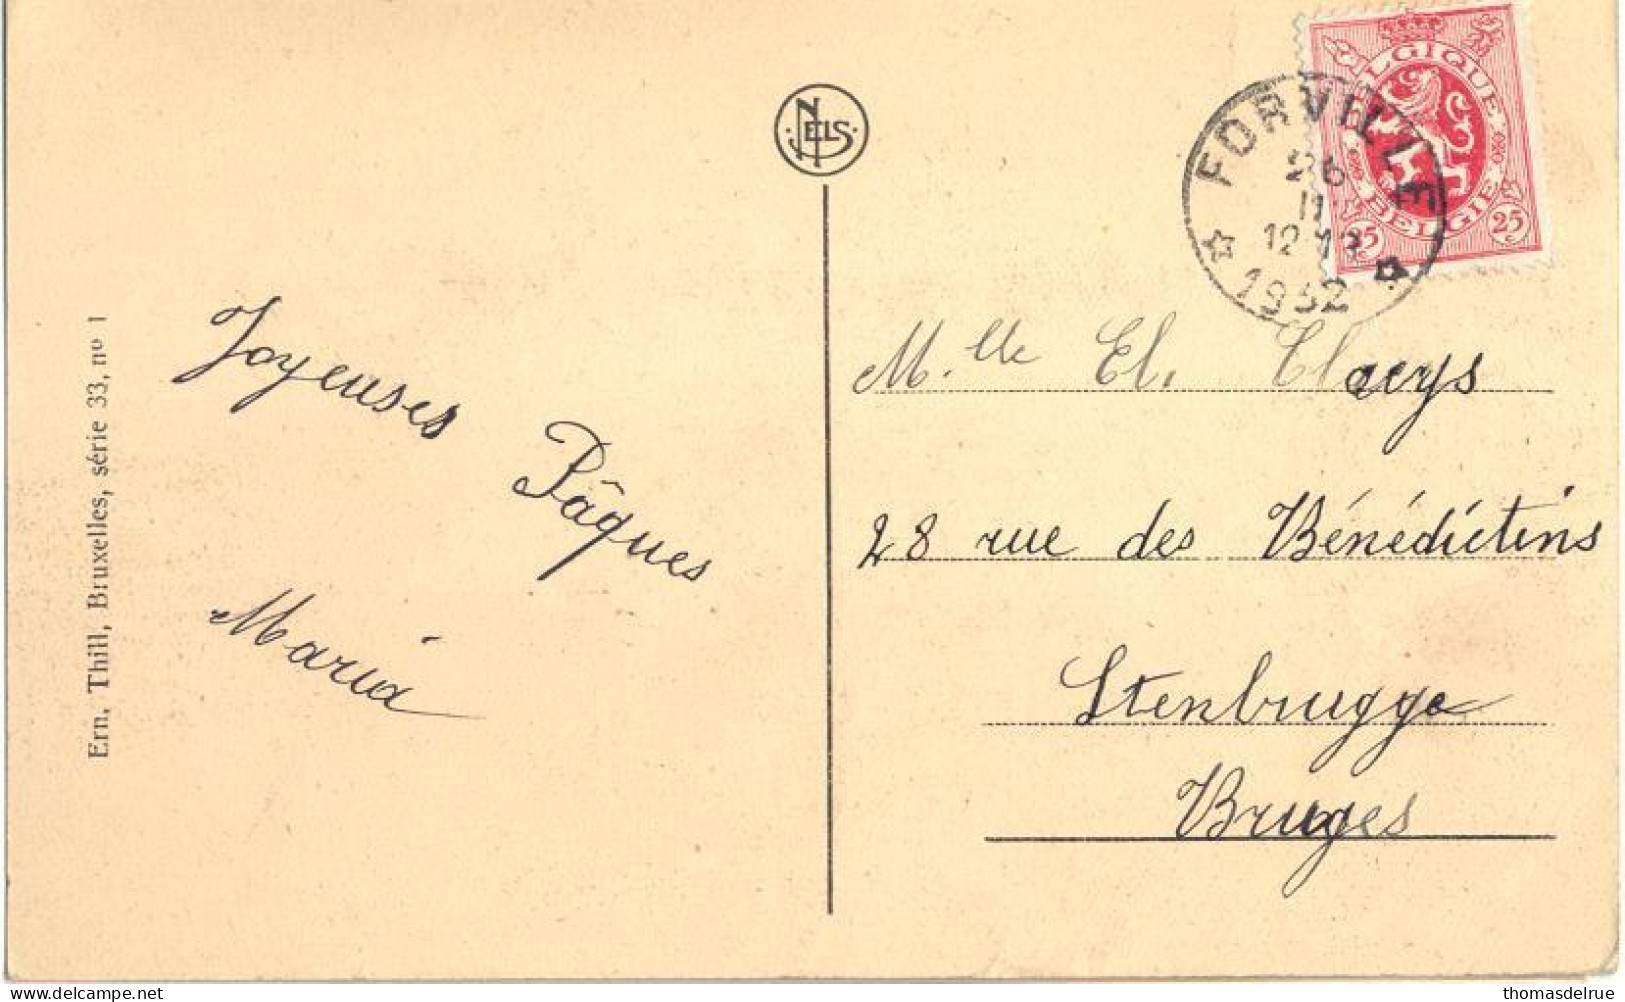 Ern. Thill, Bruxelles, série 33, nº 1
NELS
BELGIQUE
BELGIE
25 25
FORVILLE
26
12-13
1932
Joyeuses Pâques
Maria
M.lle El. Claeys
28 rue des Bénédictins
Stenbrugge
Bruges
delcampe.net
thomasdelrue